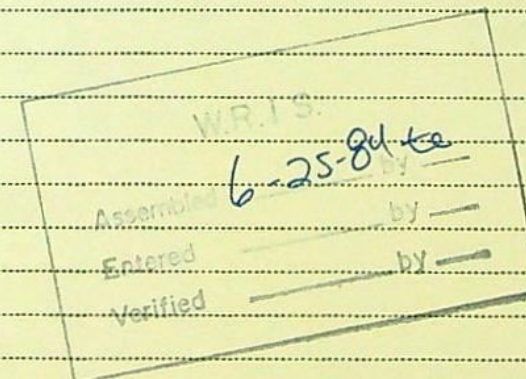 W.R.I.S.
Assembled 6-25-84 by te
Entered by
Verified by